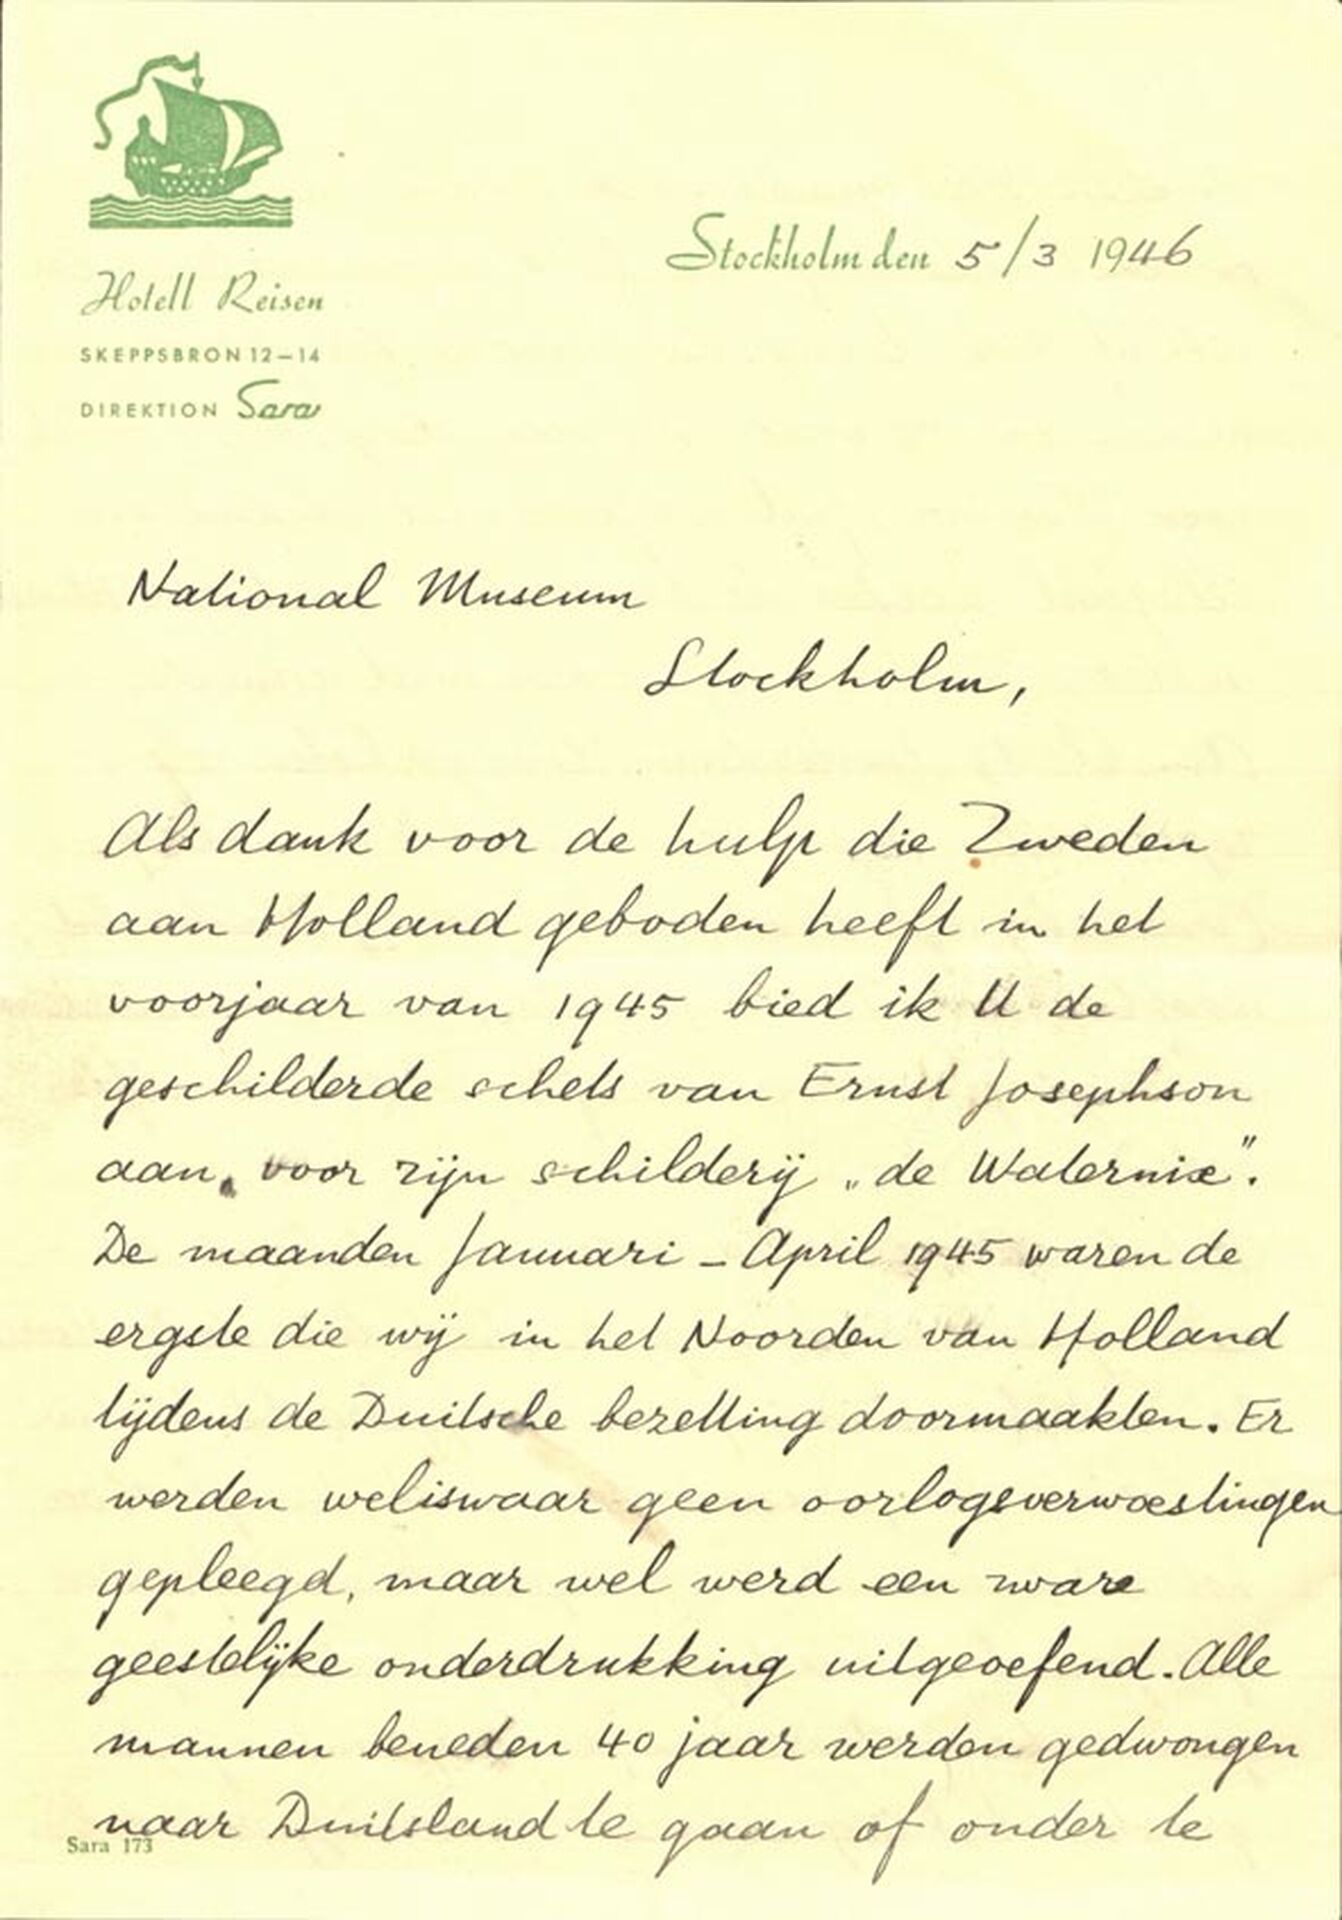 Hotell Reisen
SKEPPSBRON 12–14
DIREKTION Sara
Stockholm den 5/3 1946
National Museum
Stockholm,
Als dank voor de hulp die Zweden
aan Holland geboden heeft in het
voorjaar van 1945 bied ik U de
geschilderde schets van Ernst Josephson
aan, voor zijn schilderij „de Waternix".
De maanden Januari – April 1945 waren de
ergste die wij in het Noorden van Holland
tijdens de Duitsche bezetting doormaakten. Er
werden weliswaar geen oorlogsverwoestingen
gepleegd, maar wel werd een zware
geestelijke onderdrukking uitgeoefend. Alle
mannen beneden 40 jaar werden gedwongen
naar Duitsland te gaan of onder te
Sara 173